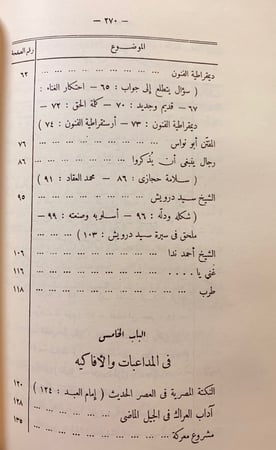 — ٢٧٠ —
الموضـــــوع
رقم الصفحة
ديمقراطية الفنون ... ... ... ... ... ٦٢
( سؤال يتطلع إلى جواب : ٦٥ - احتكار الغناء :
٦٧ - قديم وجديد : ٧٠ - كلمة الحق : ٧٢ -
ديمقراطية الفنون : ٧٣ - أرستقراطية الفنون : ٧٤ )
المفتن أبو نواس ... ... ... ... ... ٧٦
رجال ينبغى أن يذكروا ... ... ... ... ٨٦
( سلامة حجازى : ٨٦ - محمد العقاد : ٩١ )
الشيخ سيد درويش ... ... ... ... ... ٩٥
( شكله ودلّه : ٩٦ - أسلوبه وصنعته : ٩٩ -
ملحق فى سيرة سيد درويش : ١٠٣ )
الشيخ أحمد ندا ... ... ... ... ... ١٠٦
غنّي يا .... ... ... ... ... ... ١١٦
طرب ... ... ... ... ... ... ١١٨
الباب الخامس
فى المداعبات والأفاكيه
النكتة المصرية فى العصر الحديث ( إمام العبد : ١٢٤ ) ١٢٠
آداب العراك فى الجيل الماضى ... ... ... ١٢٨
مشروع معركة ... ... ... ... ... ١٣٥